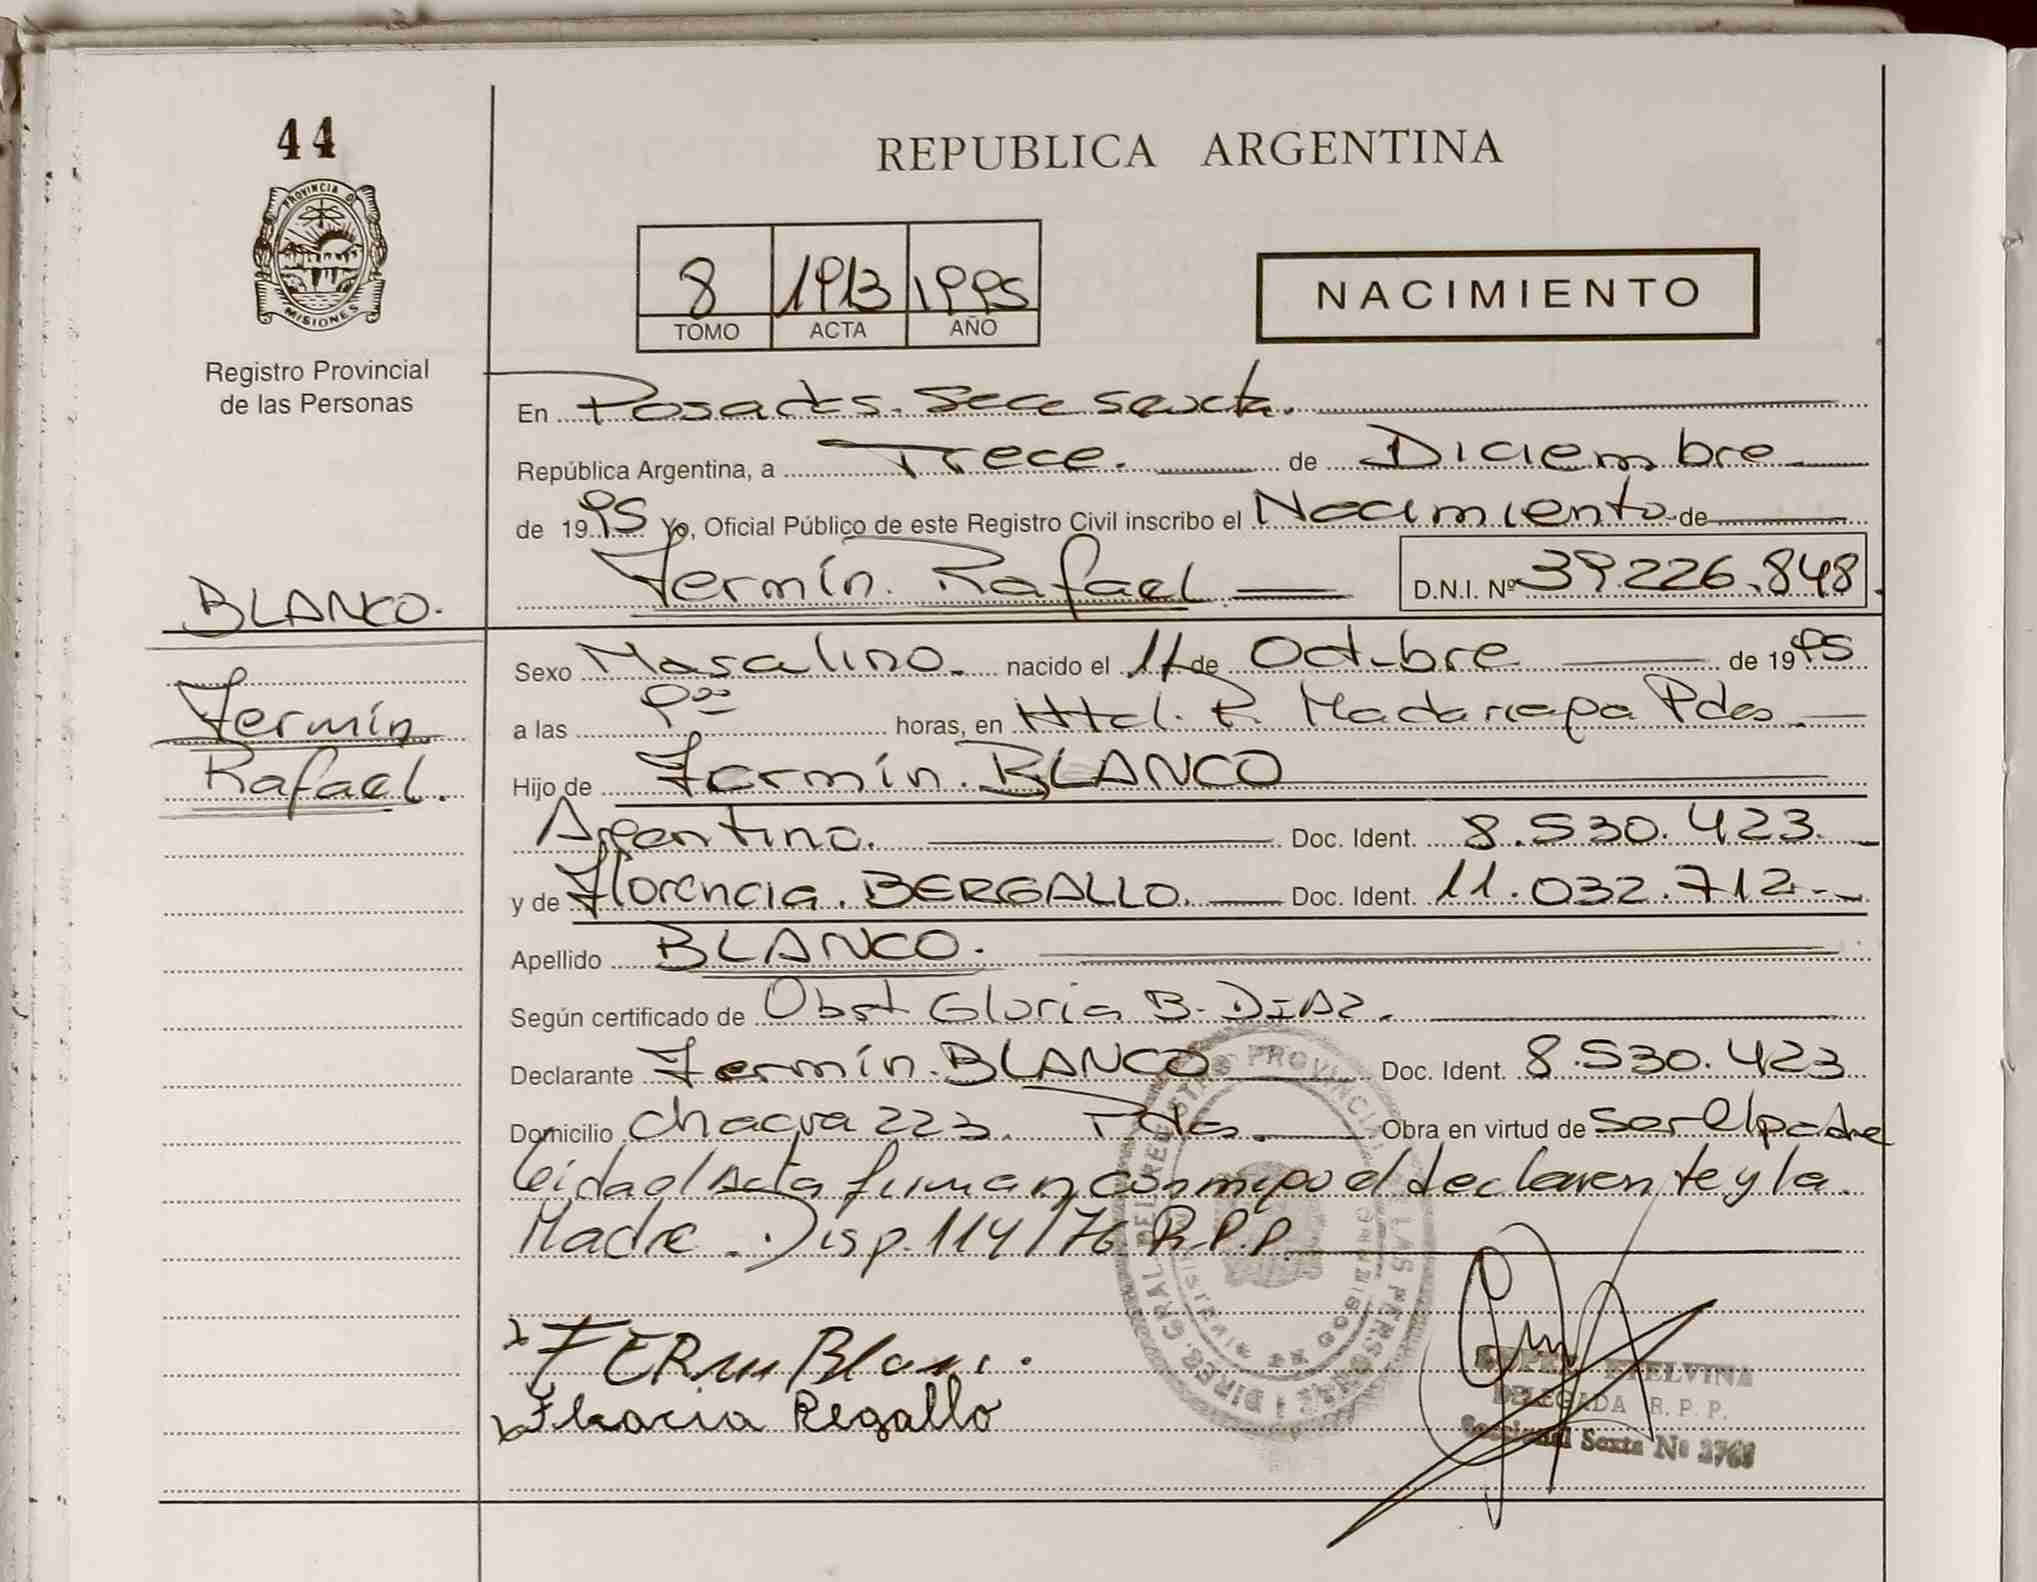 44
REPUBLICA ARGENTINA
PROVINCIA D
MISIONES
Registro Provincial
de las Personas
8 1913 1995
TOMO ACTA AÑO
NACIMIENTO
En Posadas. Secc sexta.
República Argentina, a Trece. de Diciembre
de 1995 Yo, Oficial Público de este Registro Civil inscribo el Nacimiento de
Fermín. Rafael D.N.I. Nº 39.226.848
BLANCO.
Fermín
Rafael.
Sexo Masculino. nacido el 11 de Octubre de 1995
a las 9⁰⁰ horas, en Htal. R. Madariaga Pdas.
Hijo de Fermín. BLANCO
Argentino. Doc. Ident. 8.530.423.
y de Florencia. BERGALLO. Doc. Ident. 11.032.712.
Apellido BLANCO.
Según certificado de Obst Gloria B. DIAZ.
Declarante Fermín. BLANCO Doc. Ident. 8.530.423
Domicilio chacra 223. Pdas. Obra en virtud de ser el padre
Leida el Acta firman conmigo el declarante y la
Madre. Disp. 114/76 R.P.P.
FERmin Blanc.
Flracia Regallo
ETELVINA
DELEGADA R. P. P.
Seccional Sexta Nº 3768